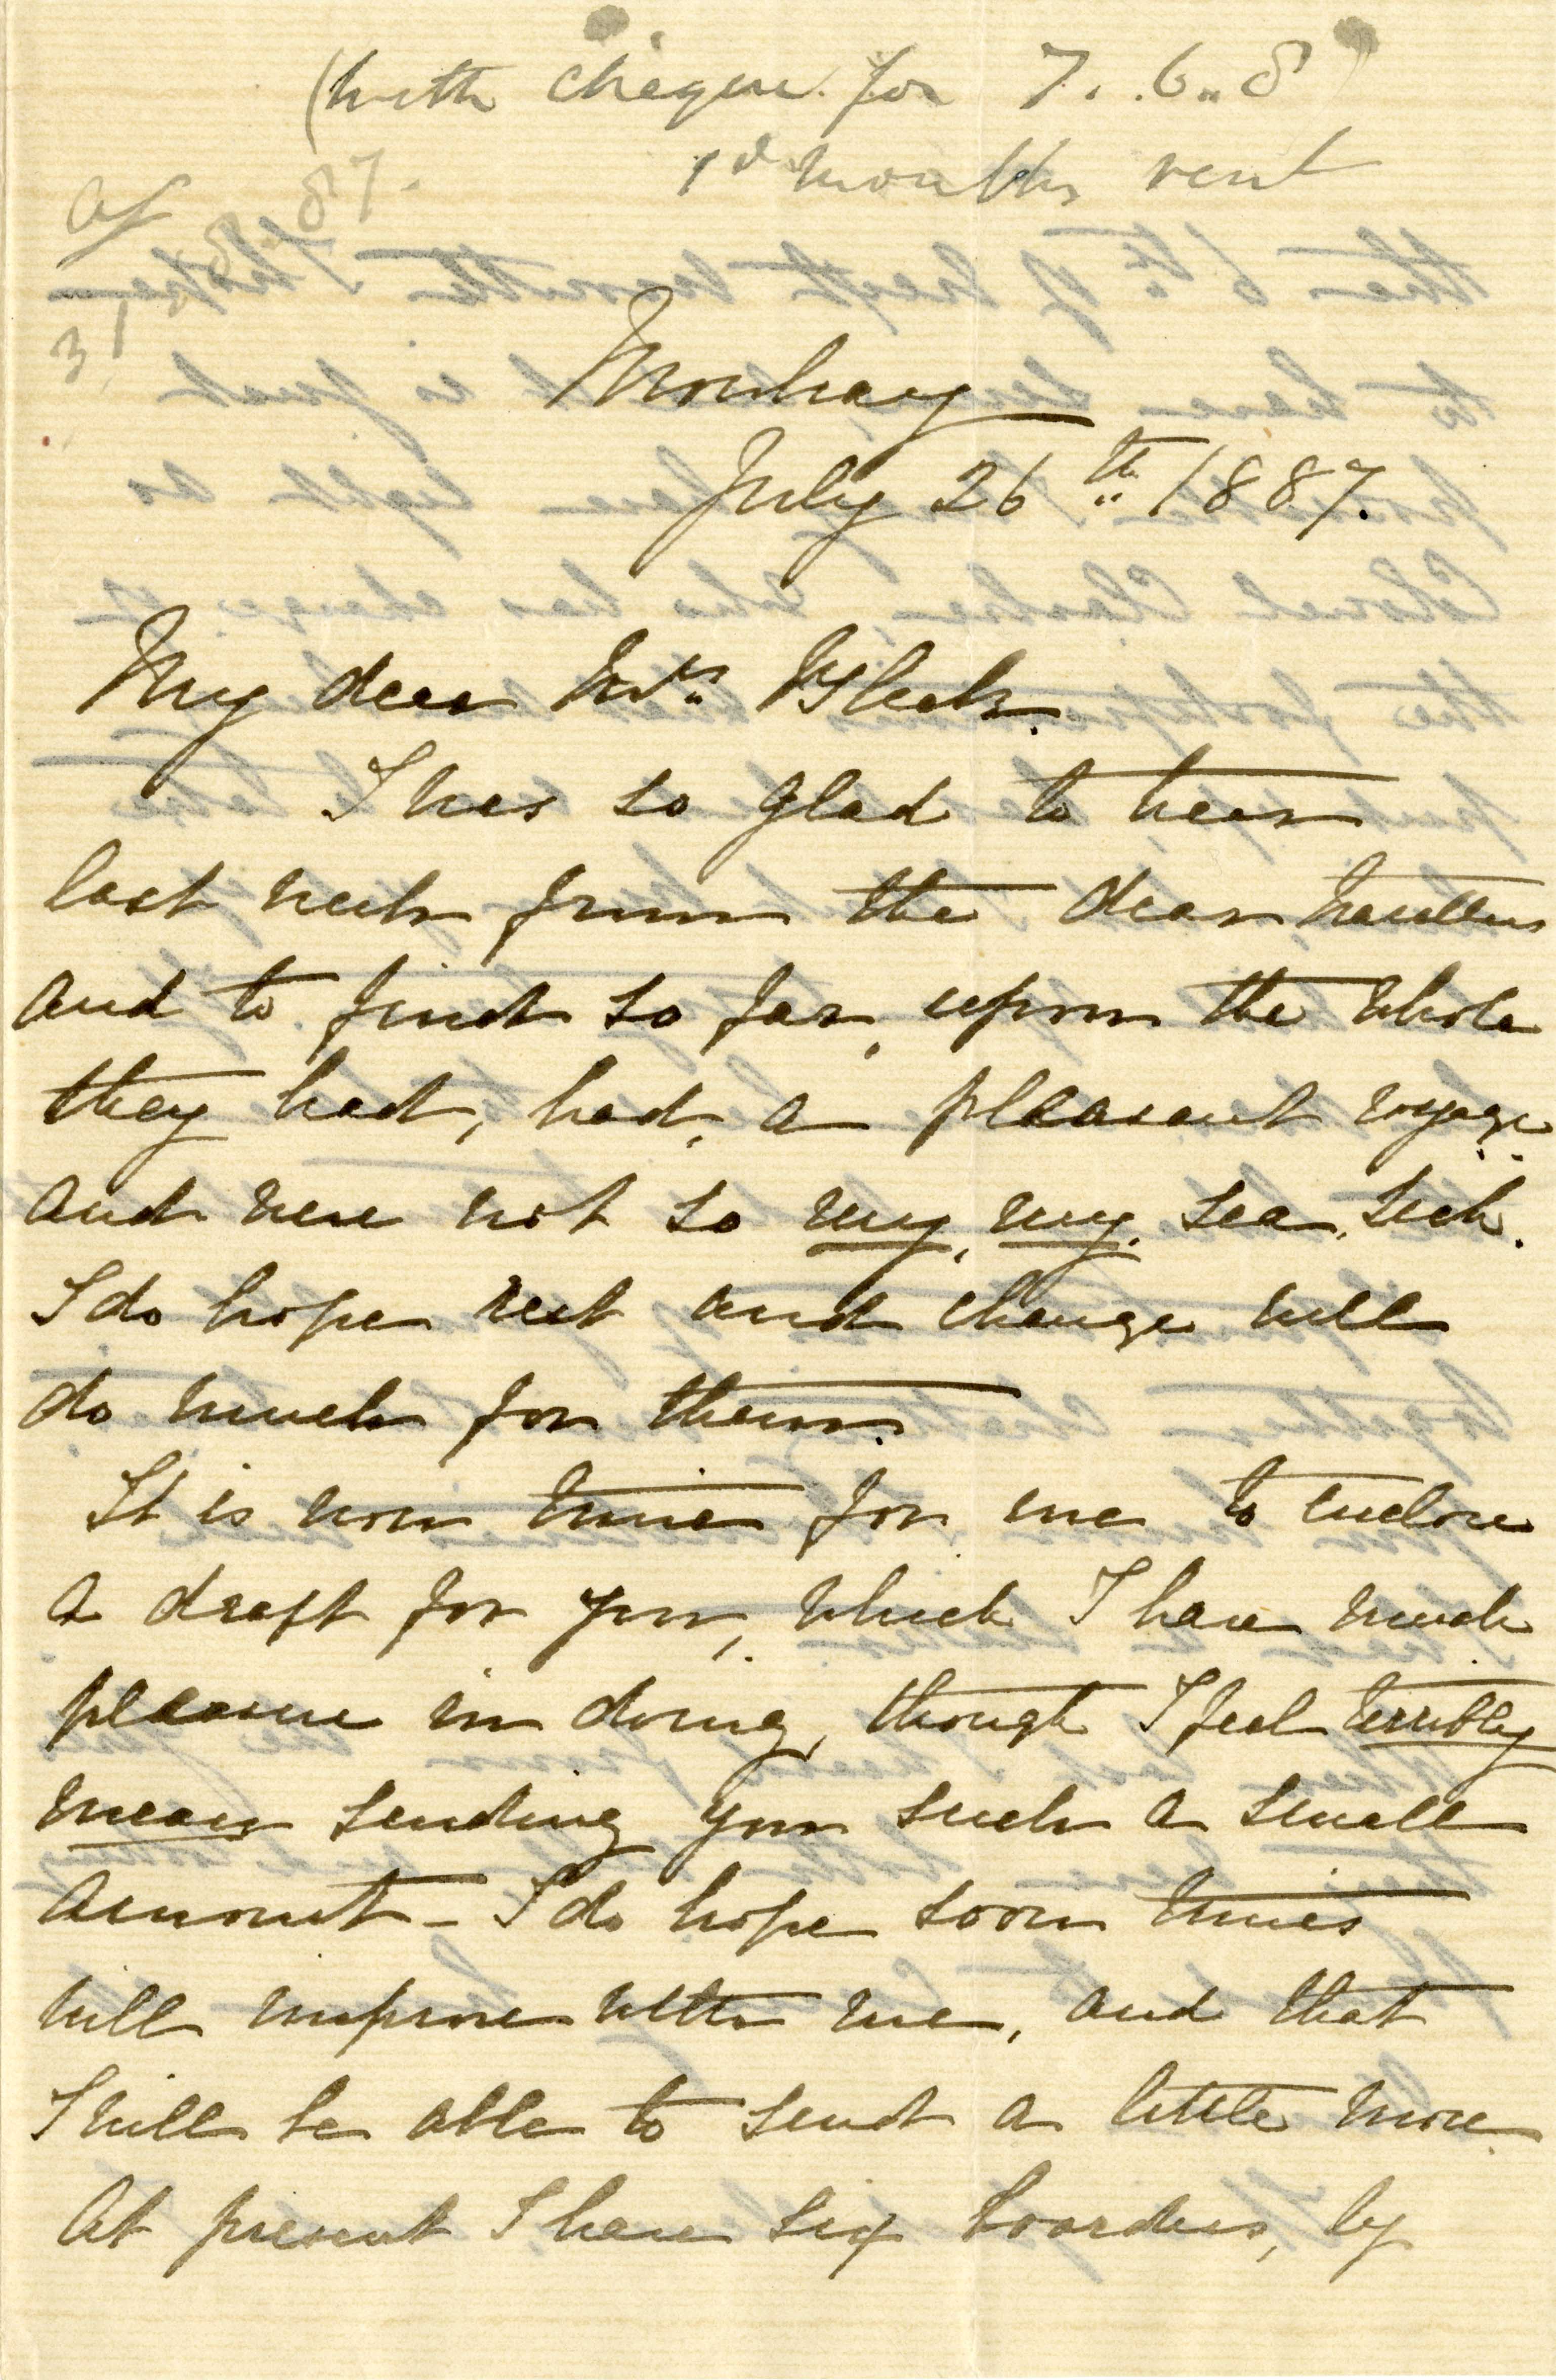 (with cheque for 7..6..8)
1st months rent
af
31 8. 87.
Mowbray
July 26th 1887.
My dear Mrs Bleek.
I was so glad to hear
last week from the dear travellers
and to find so far, upon the whole
they had, had, a pleasant voyage
and were not so very, very, sea, sick.
I do hope rest and change will
do much for them.
It is now time for me to enclose
a draft for you, which I have much
pleasure in doing, though I feel terribly
mean sending you such a small
amount - I do hope soon times
will improve with me, and that
I will be able to send a little more.
At present I have six boarders, by